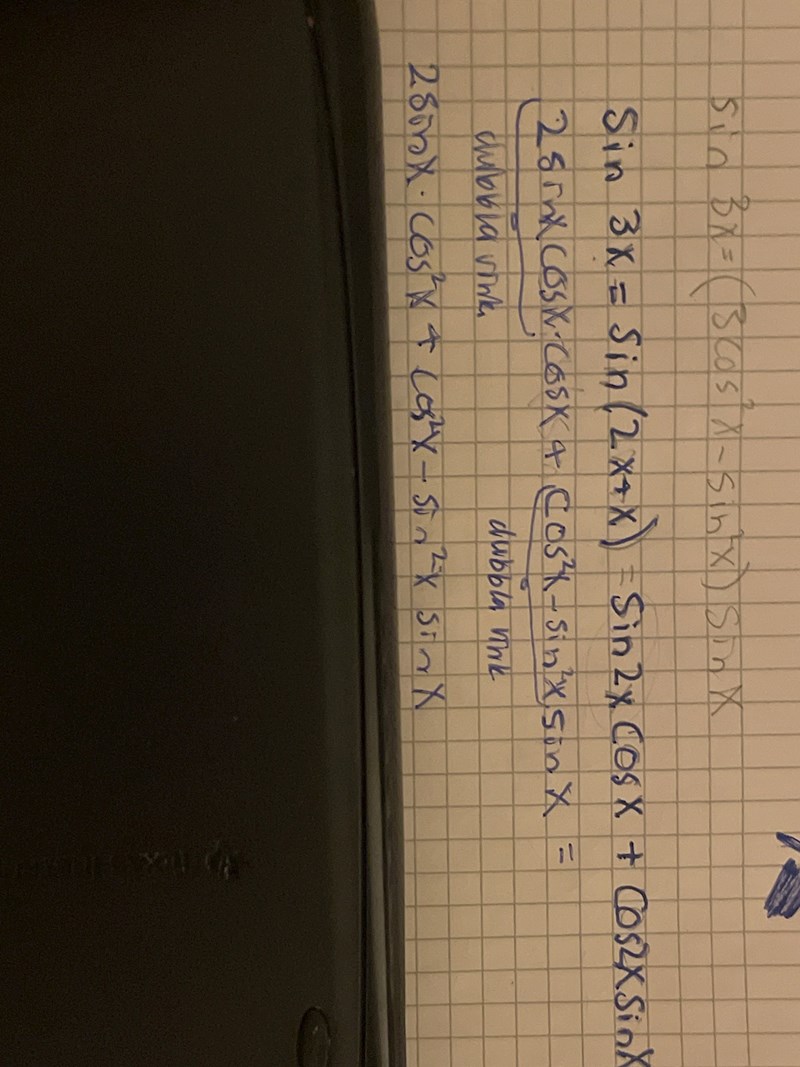 sin 3x = (3cos²x - sin²x) sin x
Sin 3x = Sin (2x+x) = Sin2x Cosx + Cos2x Sinx
2sinx Cosx · Cosx + Cos²x - sin²x · Sin x =
dubbla vink. dubbla vink
2Sinx · Cos²x + Cos²x - Sin²x sin x